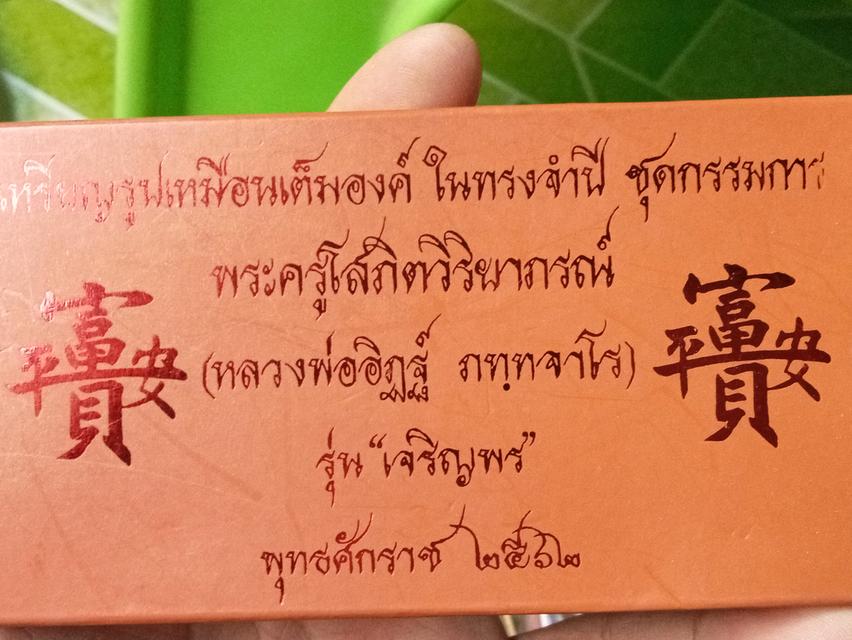 เหรียญรูปเหมือนเต็มองค์ ในทรงจำปี ชุดกรรมการ
พระครูโสภิตวิริยาภรณ์
(หลวงพ่ออิฏฐ์ ภทฺทจาโร)
รุ่น “เจริญพร”
พุทธศักราช ๒๕๖๒
富貴平安
富貴平安